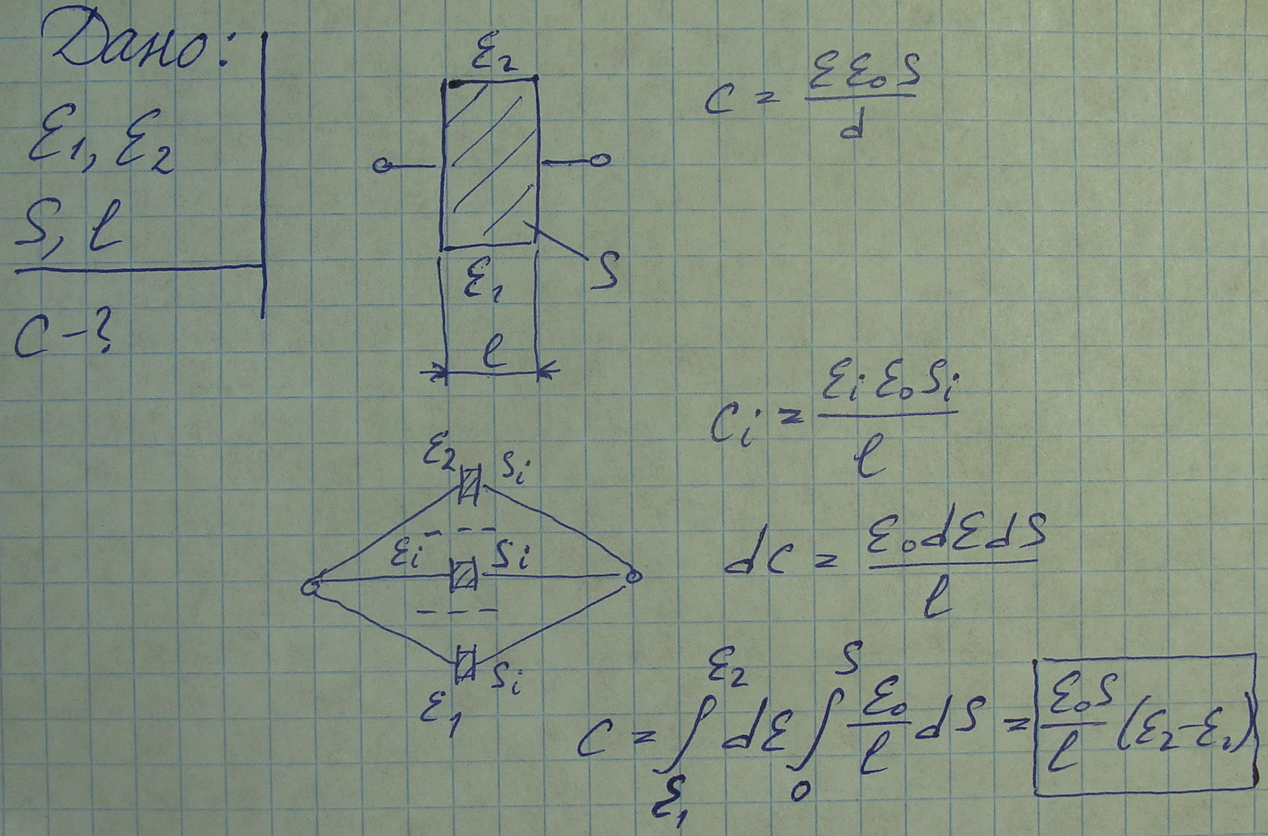 Дано:
ε₁, ε₂
S, l
C - ?
ε₂
ε₁
S
l
C = εε₀S / d
ε₂ Sᵢ
εᵢ Sᵢ
ε₁ Sᵢ
Cᵢ = εᵢε₀Sᵢ / l
dC = ε₀dεdS / l
C = ∫_{ε₁}^{ε₂} dε ∫_0^S ε₀/l dS = ε₀S/l (ε₂-ε₁)